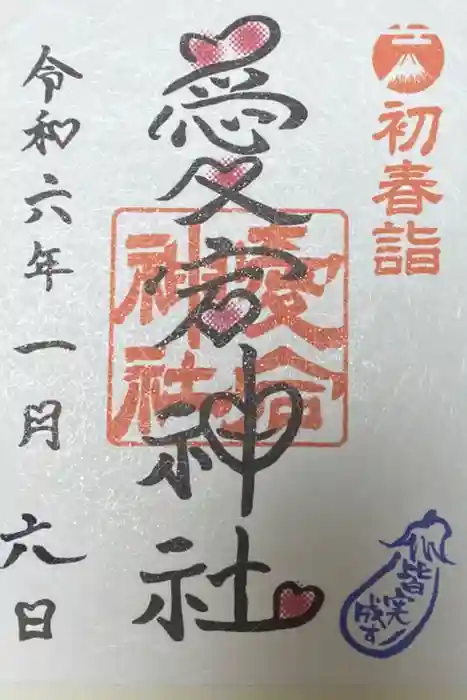 初春詣
愛宕神社
愛宕
神社
令和六年一月六日
皆笑
成す